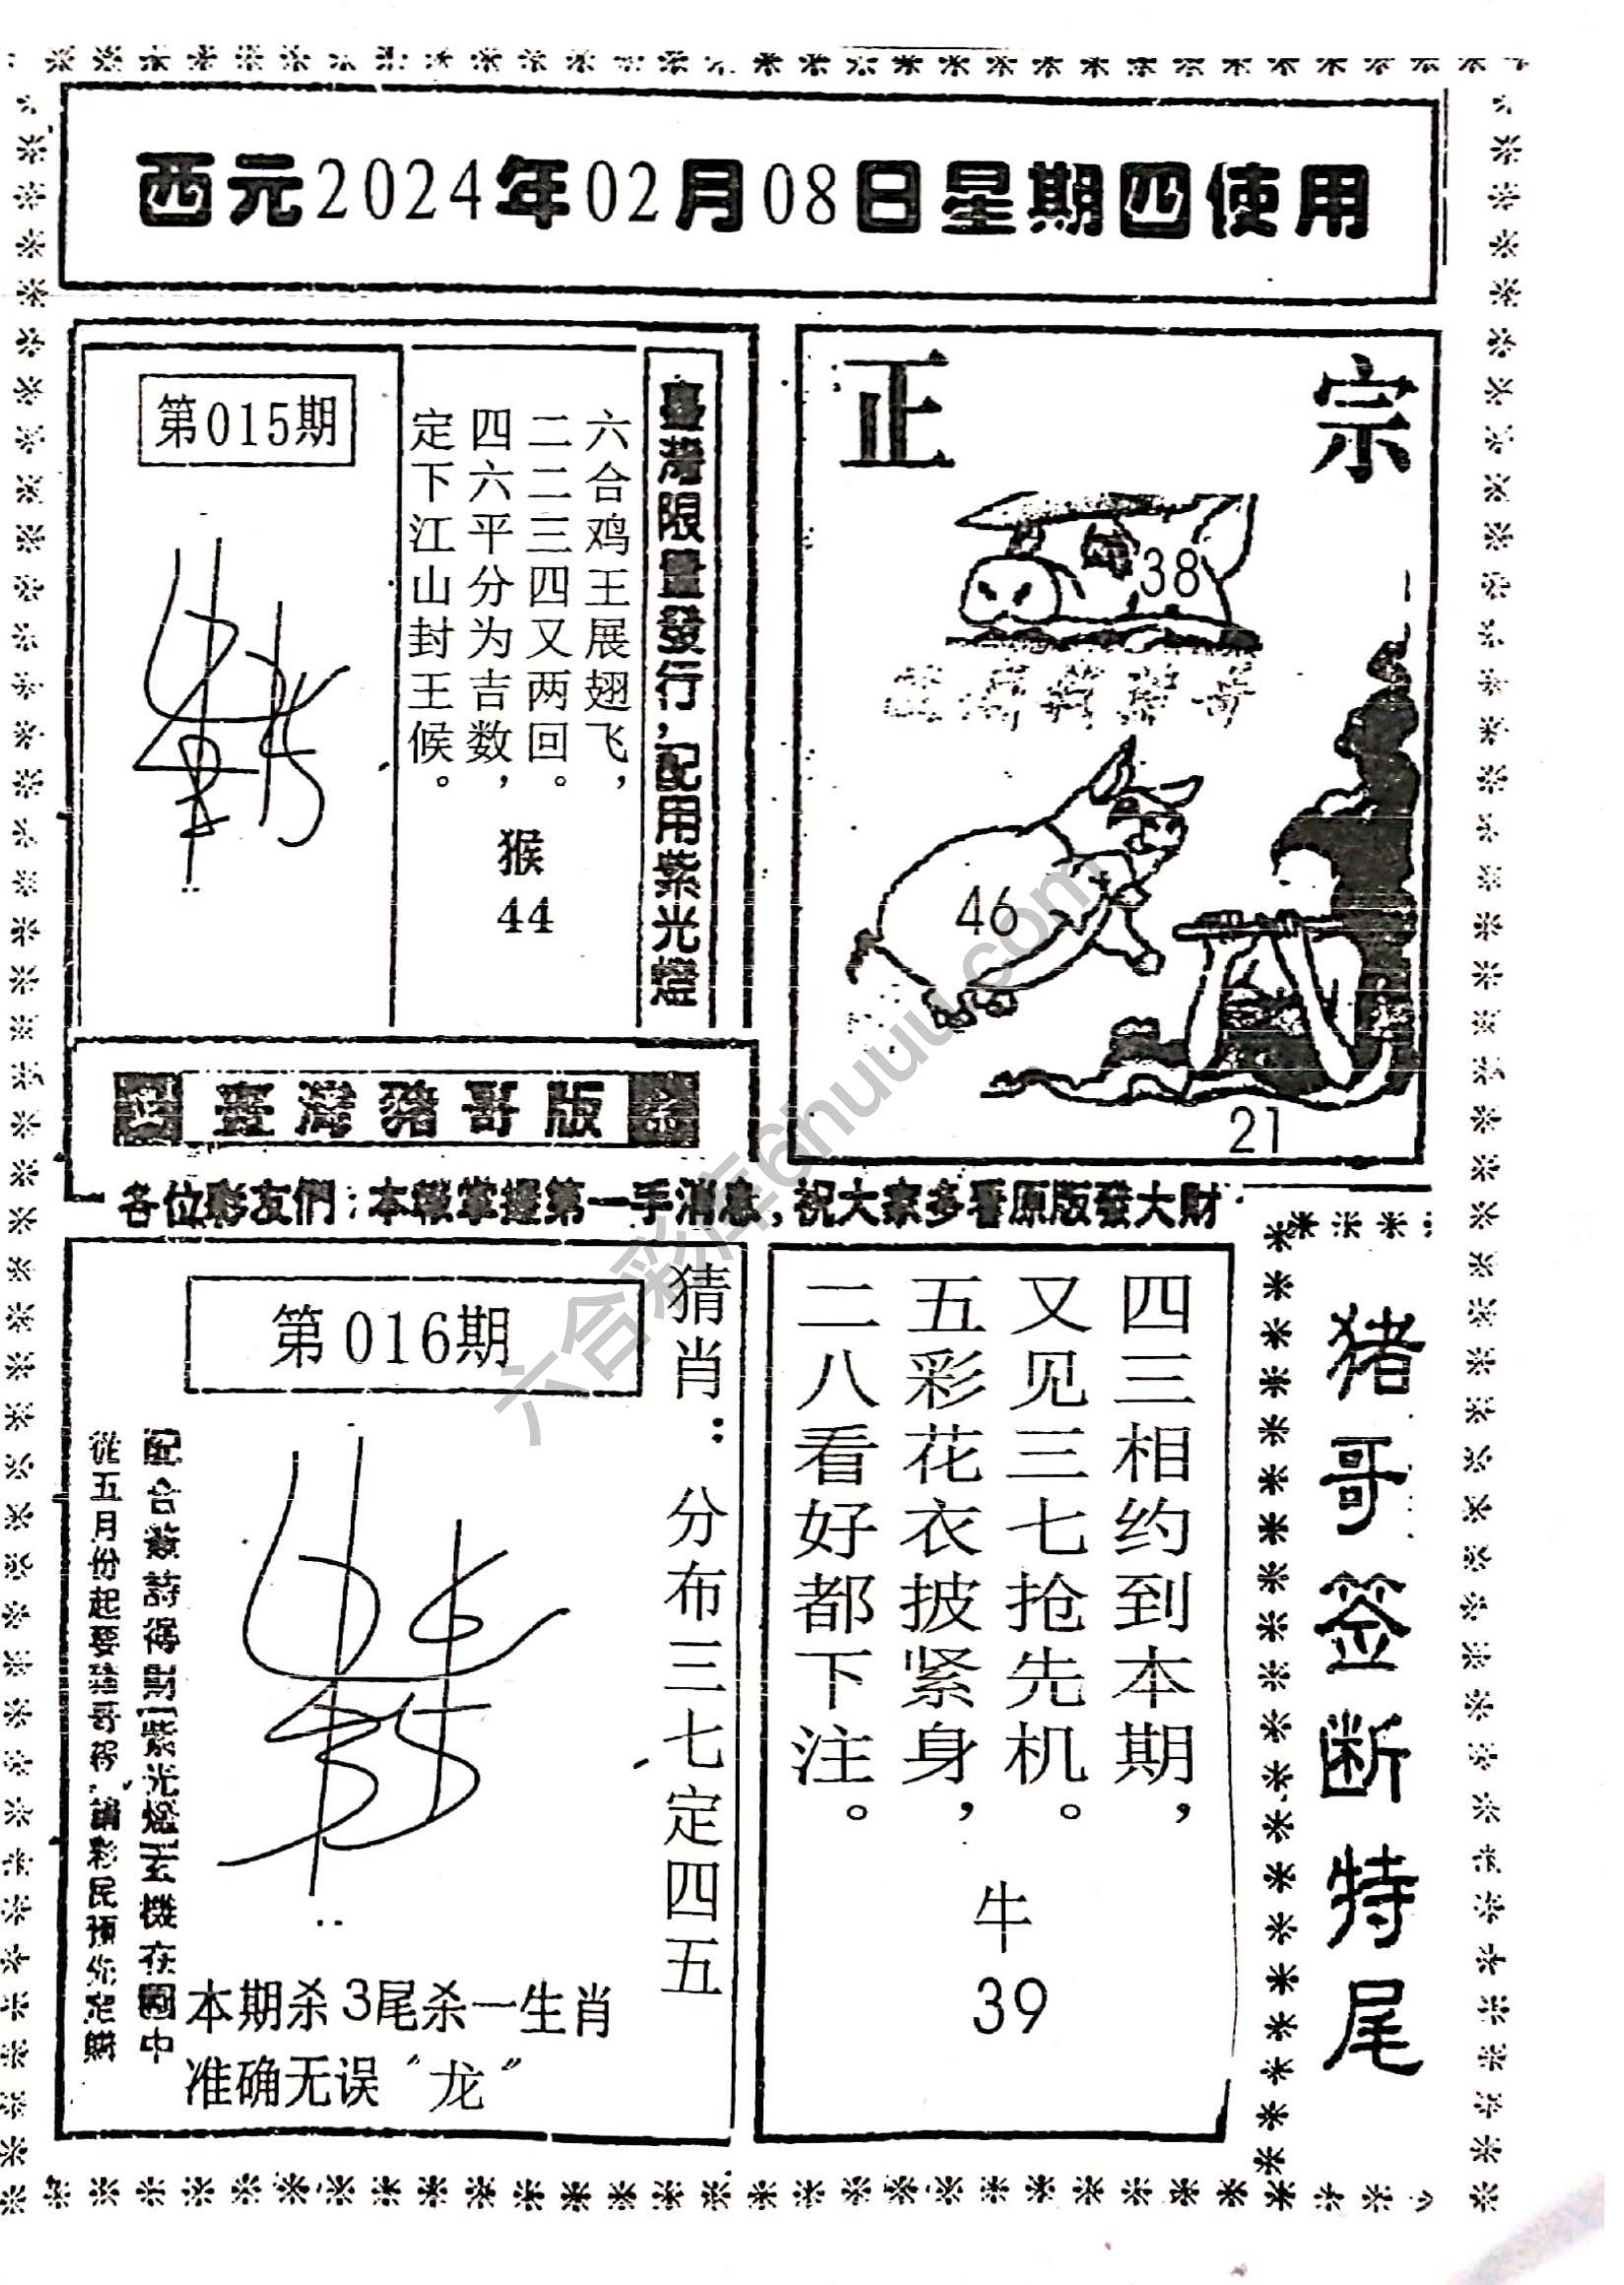 西元2024年02月08日星期四使用
第015期
六合鸡王展翅飞，
二二三四又两回。
四六平分为吉数，
定下江山封王候。
猴
44
臺灣限量發行，配用紫光燈
正宗
38
46
21
臺灣豬哥版
各位彩友們：本報掌握第一手消息，祝大家多看原版發大財
第016期
猜肖：分布三七定四五
配合簽詩得財紫光燈玄機在圖中
從五月份起要豬哥彩民預先定購
本期杀3尾杀一生肖
准确无误“龙”
四三相约到本期，
又见三七抢先机。
五彩花衣披紧身，
二八看好都下注。
牛
39
猪哥签断特尾
六合彩库6huuu.com